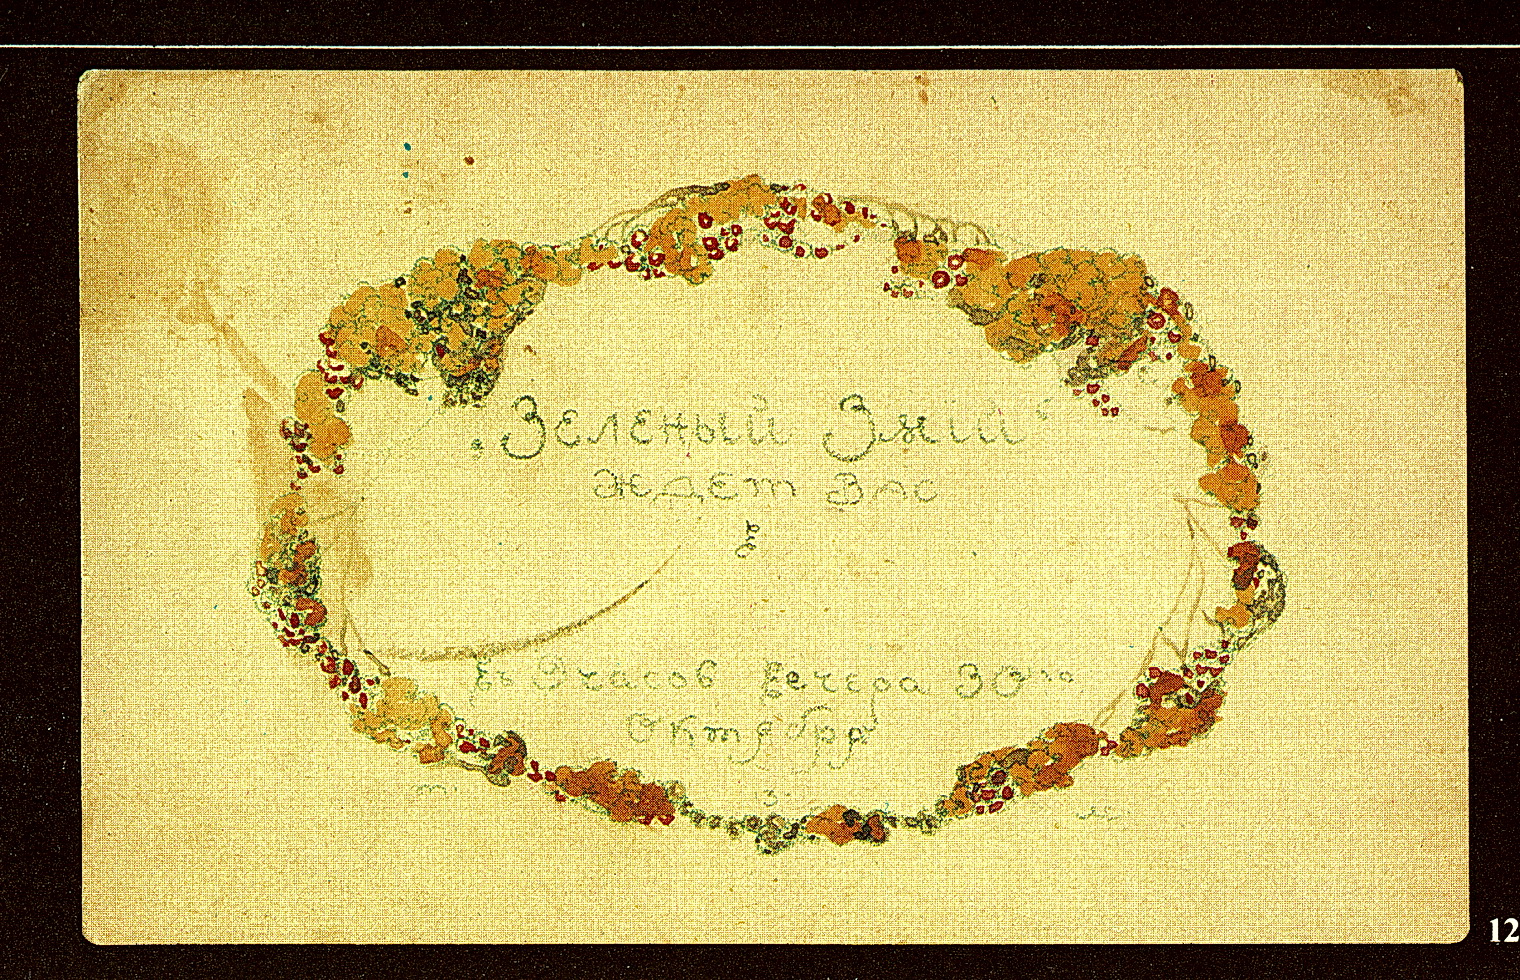 „Зеленый Змiй“
ждет Вас
въ 9 часов вечера 30го
Октября
12